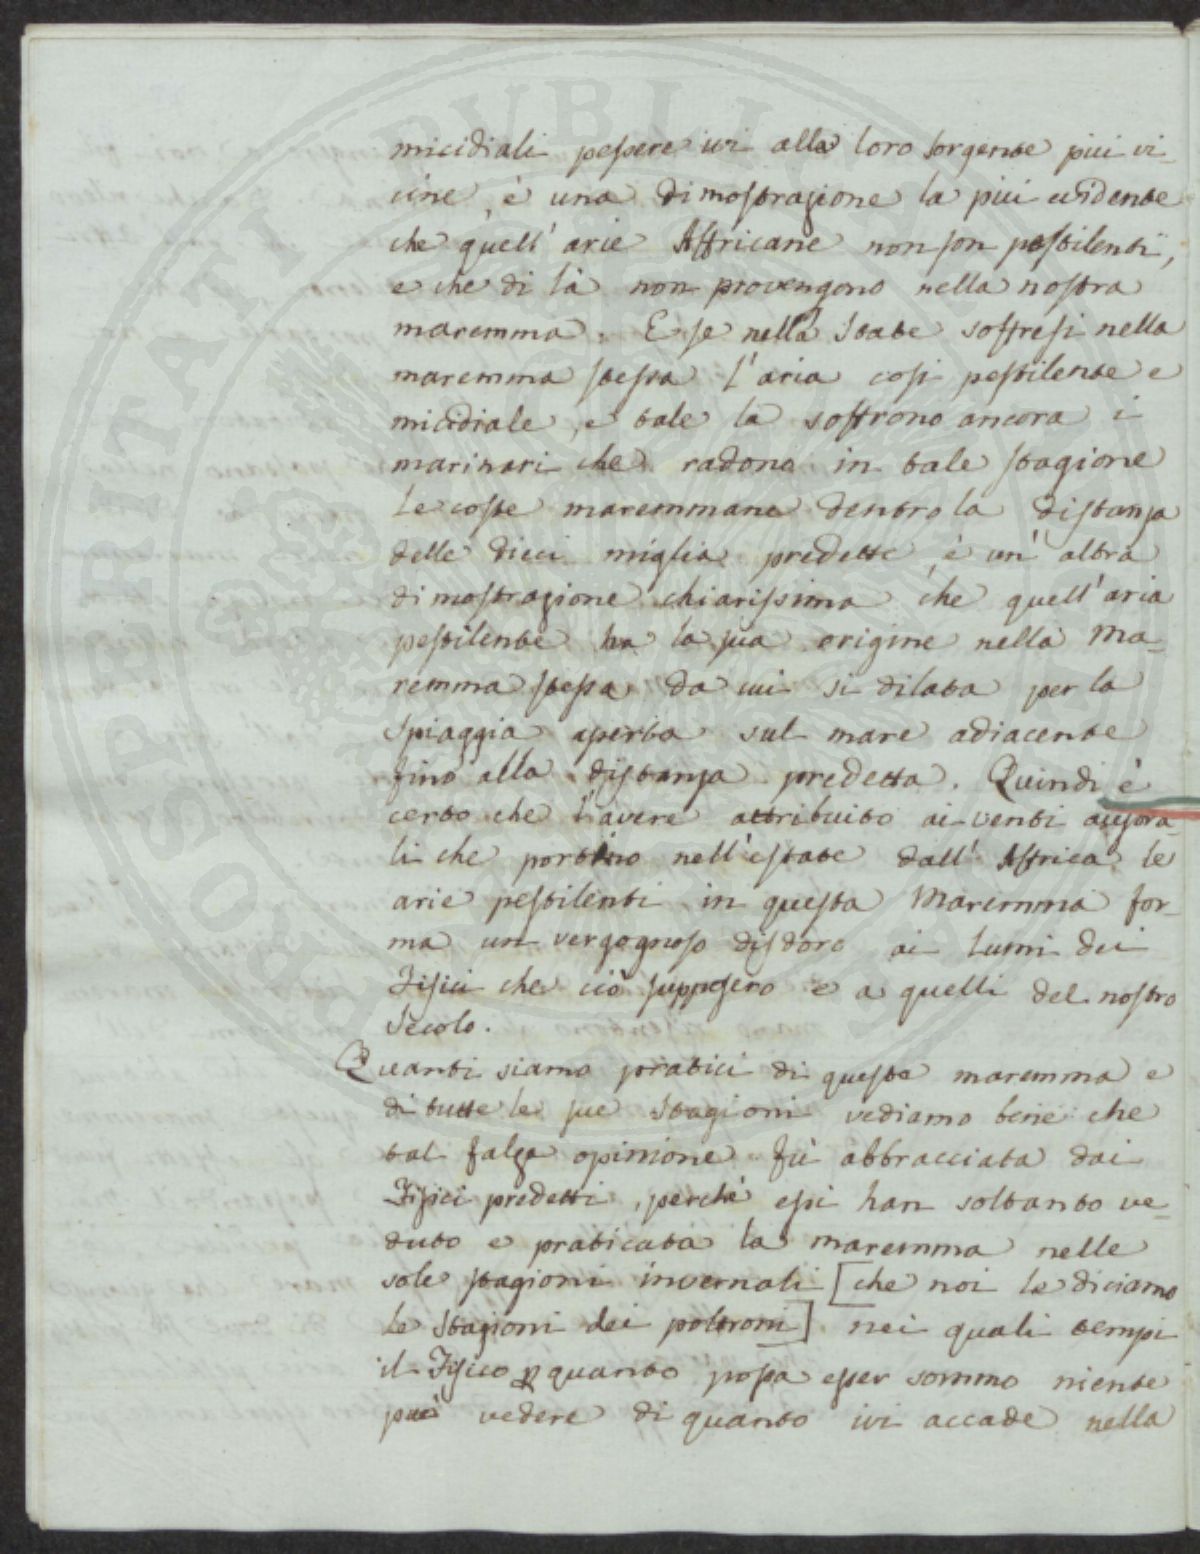 micidiali p essere ivi alla loro sorgente più vi-
cine, è una dimostrazione la più evidente
che quell' arie Affricane non son pestilenti,
e che di là non provengono nella nostra
maremma. E se nella state soffresi nella
maremma stessa l'aria così pestilente e
micidiale, e tale la soffrono ancora i
marinari che radono in tale stagione
le coste maremmane dentro la distanza
delle dieci miglia predette, è un' altra
dimostrazione chiarissima che quell'aria
pestilente ha la sua origine nella Ma-
remma stessa da cui si dilata per la
spiaggia aperta sul mare adiacente
fino alla distanza predetta. Quindi è
certo che l'avere attribuito ai venti austra
li che portino nell'estate dall' Affrica le
arie pestilenti in questa Maremma for-
ma un vergognoso disdoro ai lumi dei
Fisici che ciò supposero e a quelli del nostro
secolo.
Quanti siamo pratici di questa maremma e
di tutte le sue stagioni vediamo bene che
tal falza opinione fù abbracciata dai
Fisici predetti, perchè essi han soltanto ve-
duto e praticata la maremma nelle
sole stagioni invernali [che noi le diciamo
le stagioni dei poltroni] nei quali tempi
il Fisico p quanto possa esser sommo niente
può vedere di quanto ivi accade nella
PROSPERITATI PUBLICAE